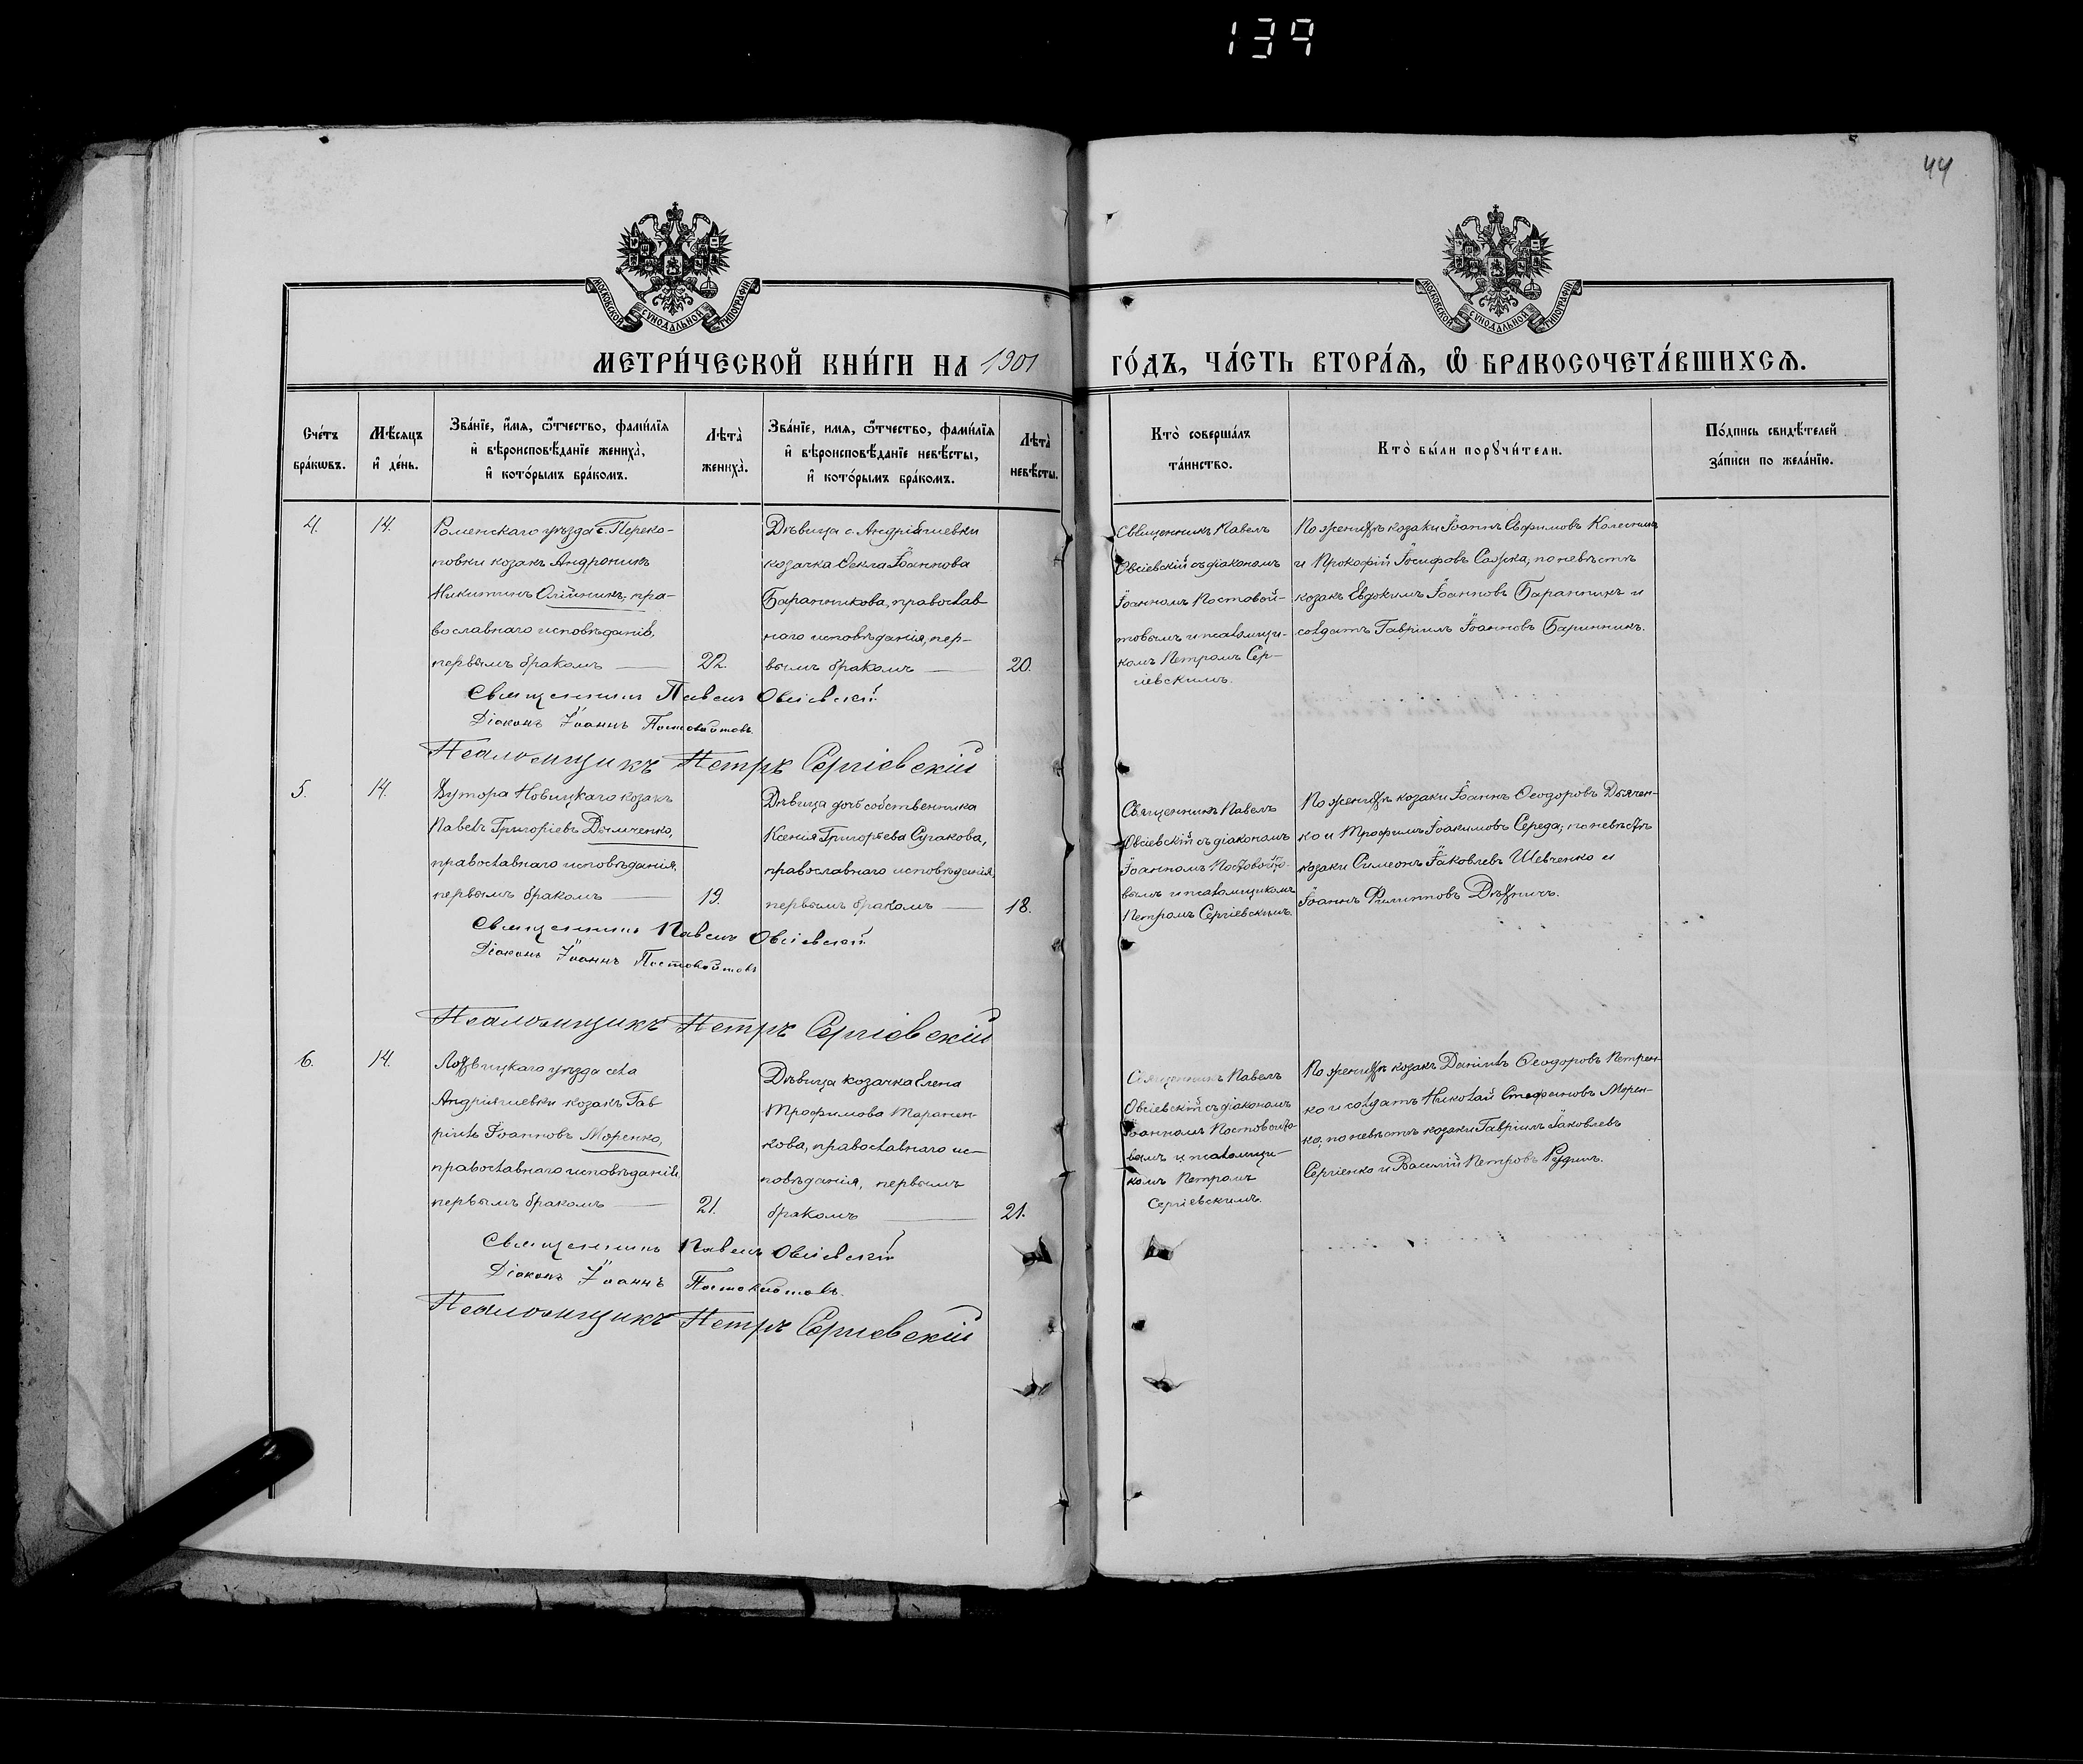 139
44
МОСКОВСКОЙ СѴНОДАЛЬНОЙ ТИПОГРАФІИ
МОСКОВСКОЙ СѴНОДАЛЬНОЙ ТИПОГРАФІИ
МЕТРИ́ЧЕСКОЙ КНИ́ГИ НА 1901 ГО́ДЪ, ЧА́СТЬ ВТОРА́Я, Ѽ БРАКОСОЧЕТА́ВШИХСЯ.
Сче́тъ
бра́кѡвъ.
Мѣ́сяцъ
и҆ де́нь.
Зва́нїе, и҆́мя, ѻ҆́тчество, фами́лїя
и҆ вѣроисповѣ́данїе жениха̀,
и҆ кото́рымъ бра́комъ.
Лѣта̀
жениха̀.
Зва́нїе, имя, ѻ҆́тчество, фами́лїя
и҆ вѣроисповѣ́данїе невѣ́сты,
и҆ кото́рымъ бра́комъ.
Лѣта̀
невѣ́сты.
Кто̀ соверша́лъ
та́инство.
Кто̀ бы́ли порꙋчи́тели.
По́дпись свидѣ́телей
за́писи по жела́нїю.
4.
14.
Роменскаго уѣзда с. Переко-
повки козакъ Андроникъ
Никитинъ Олійникъ, пра-
вославнаго исповѣданія,
первымъ бракомъ
22.
Дѣвица с. Андріяшевки
козачка Ѳекла Іоаннова
Баранникова, православ
наго исповѣданія, пер-
вымъ бракомъ
20.
Священникъ Павелъ
Овсіевскій съ діакономъ
Іоанномъ Постовой-
товымъ и псаломщи-
комъ Петромъ Сер-
гіевскимъ.
По женихѣ козаки Іоаннъ Евфимовъ Колесникъ
и Прокофій Іосифовъ Сажка, по невѣстѣ
козакъ Евдокимъ Іоанновъ Баранникъ и
солдатъ Гавріилъ Іоанновъ Баринникъ.
Священникъ Павелъ Овсіевскій
Діаконъ Іоаннъ Постовойтовъ.
Псаломщикъ Петръ Сергіевскій
5.
14.
Хутора Новицкаго козакъ
Павелъ Григоріевъ Дымченко,
православнаго исповѣданія,
первымъ бракомъ
19.
Дѣвица дочь собственника
Ксенія Григорьева Сугакова,
православнаго исповѣданія,
первымъ бракомъ
18.
Священникъ Павелъ
Овсіевскій съ діакономъ
Іоанномъ Постовойто-
вымъ и псаломщикомъ
Петромъ Сергіевскимъ.
По женихѣ козаки Іоаннъ Ѳеодоровъ Дьячен-
ко и Трофимъ Іоакимовъ Середа; по невѣстѣ
козаки Симеонъ Іаковлевъ Шевченко и
Іоаннъ Филипповъ
Священникъ Павелъ Овсіевскій
Діаконъ Іоаннъ Постовойтовъ
Псаломщикъ Петръ Сергіевскій
6.
14.
Лохвицкаго уѣзда села
Андріяшевки козакъ Гав
ріилъ Іоанновъ Моренко,
православнаго исповѣданія,
первымъ бракомъ
21.
Дѣвица козачка Елена
Трофимова Таранен-
кова, православнаго ис-
повѣданія, первымъ
бракомъ
21.
Священникъ Павелъ
Овсіевскій съ діакономъ
Іоанномъ Постовойто-
вымъ и псаломщи-
комъ Петромъ
Сергіевскимъ.
По женихѣ козакъ Даніилъ Ѳеодоровъ Петрен-
ко и солдатъ Николай Стефановъ Морен-
ко, по невѣстѣ козаки Гавріилъ Іаковлевъ
Сергіенко и Василій Петровъ
Священникъ Павелъ Овсіевскій
Діаконъ Іоаннъ Постовойтовъ.
Псаломщикъ Петръ Сергіевскій